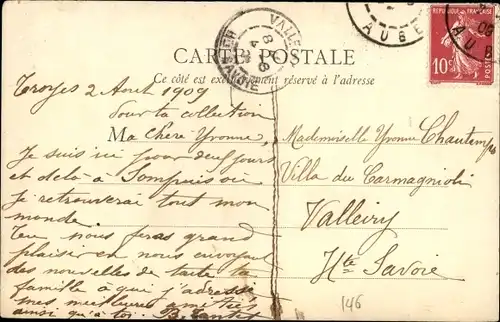 CARTE POSTALE
Ce côté est exclusivement réservé à l'adresse
VALLE
HTE SAVOIE
AUBE
RÉPUBLIQUE FRANÇAISE
10c
POSTES
AUB
Troyes 2 Aout 1909
Pour ta collection
Ma Chère Yvonne,
Je suis ici pour deux jours
et delà à Sompuis où
je retrouverai tout mon
monde.
Tu nous feras grand
plaisir en nous envoyant
des nouvelles de toute ta
famille à qui j'adresse
mes meilleures amitiés
ainsi qu'à toi. B.
Mademoiselle Yvonne Chautemps
Villa du Carmagnioli
Valleiry
Hte Savoie
146